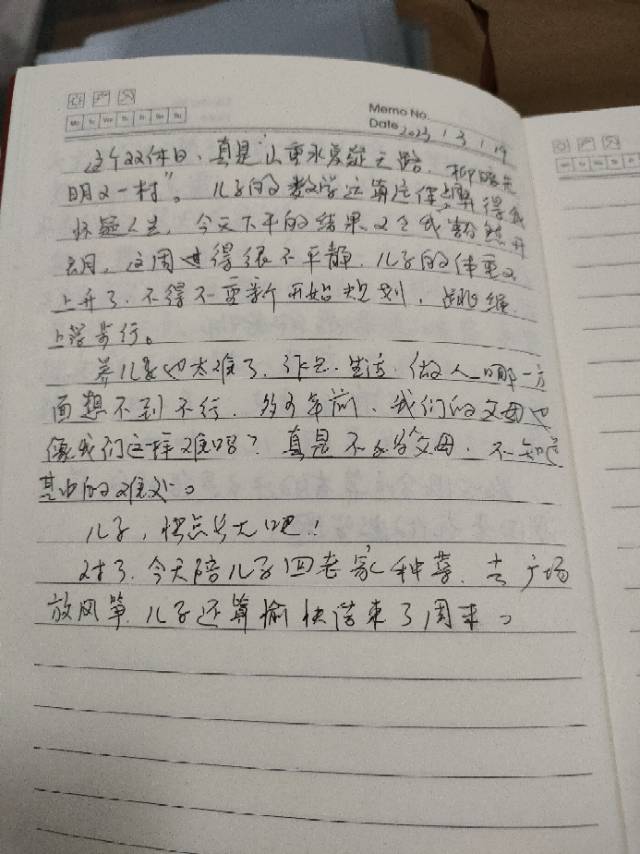 Memo No.
Date 2023 / 3 / 19
Mo Tu We Th Fr Sa Su
这个双休日、真是"山重水复疑无路，柳暗花
明又一村"。儿子的数学运算这作题得我
怀疑人生，今天下午的结果又令我豁然开
朗，这周过得很不平静，儿子的体重又
上升了，不得不重新开始规划，继
上学步行。
养儿子也太难了，作息、生活、做人，哪一方
面想不到不行，多少年前，我们的父母也
像我们这样难吗？真是不为父母，不知道
其中的难处。
儿子，快点长大吧！
对了，今天陪儿子回老家种草，去广场
放风筝，儿子还算愉快结束了周末。